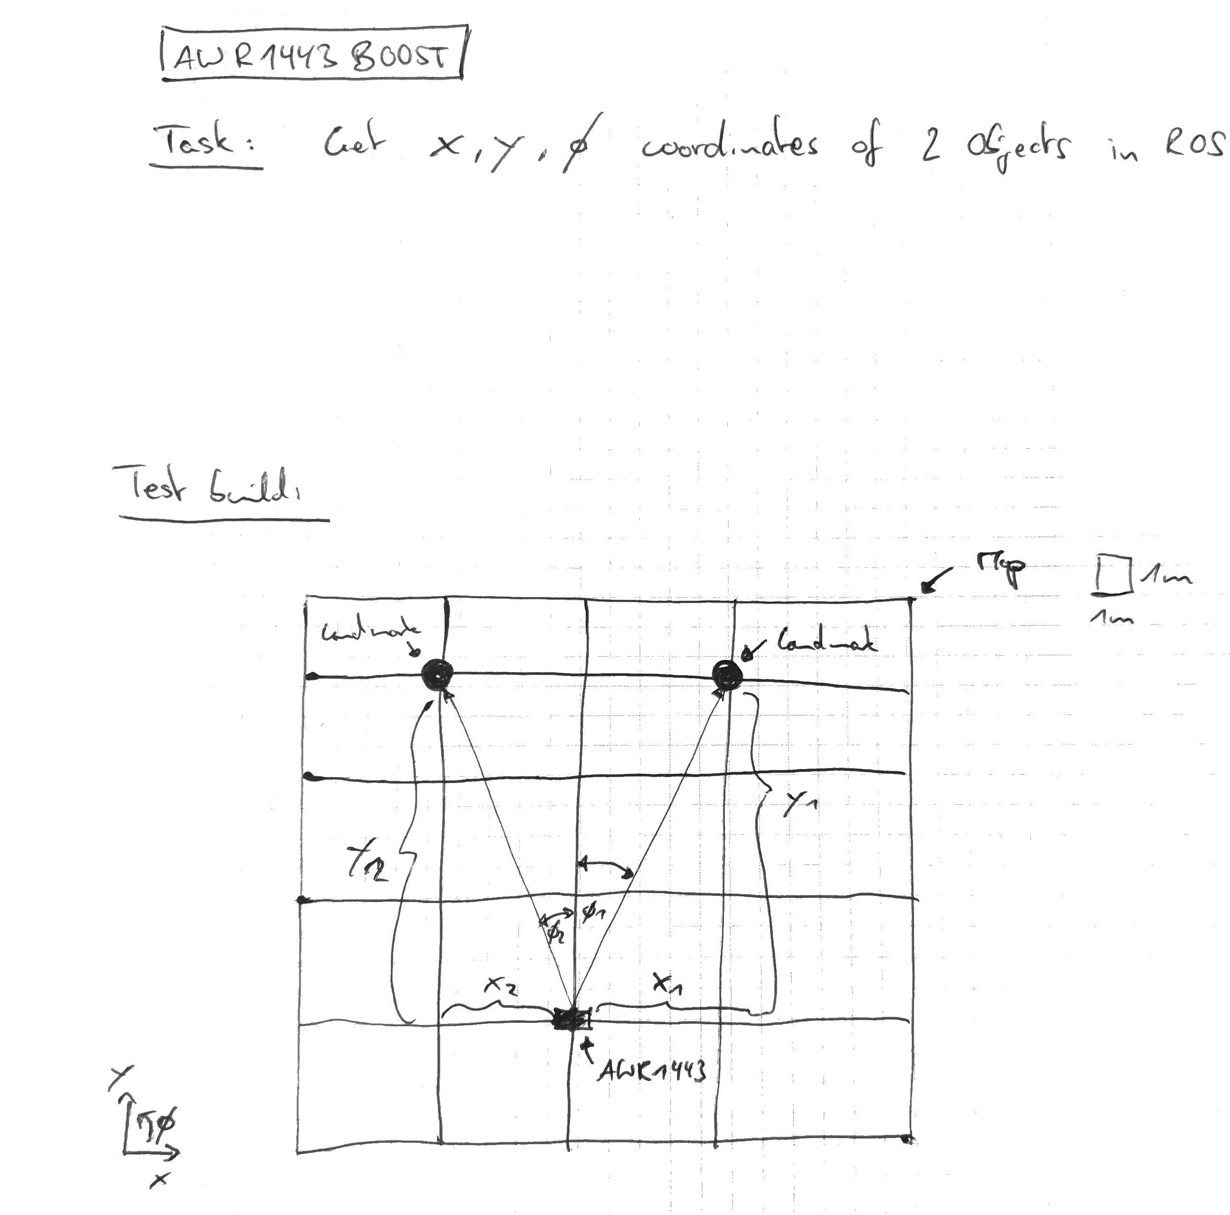 AWR1443 BOOST
Task: Get x, y, φ coordinates of 2 Objects in ROS
Test build:
Map
1m
1m
Landmark
Landmark
Y1
Y2
φ1
φ2
x2
x1
AWR1443
y
φ
x